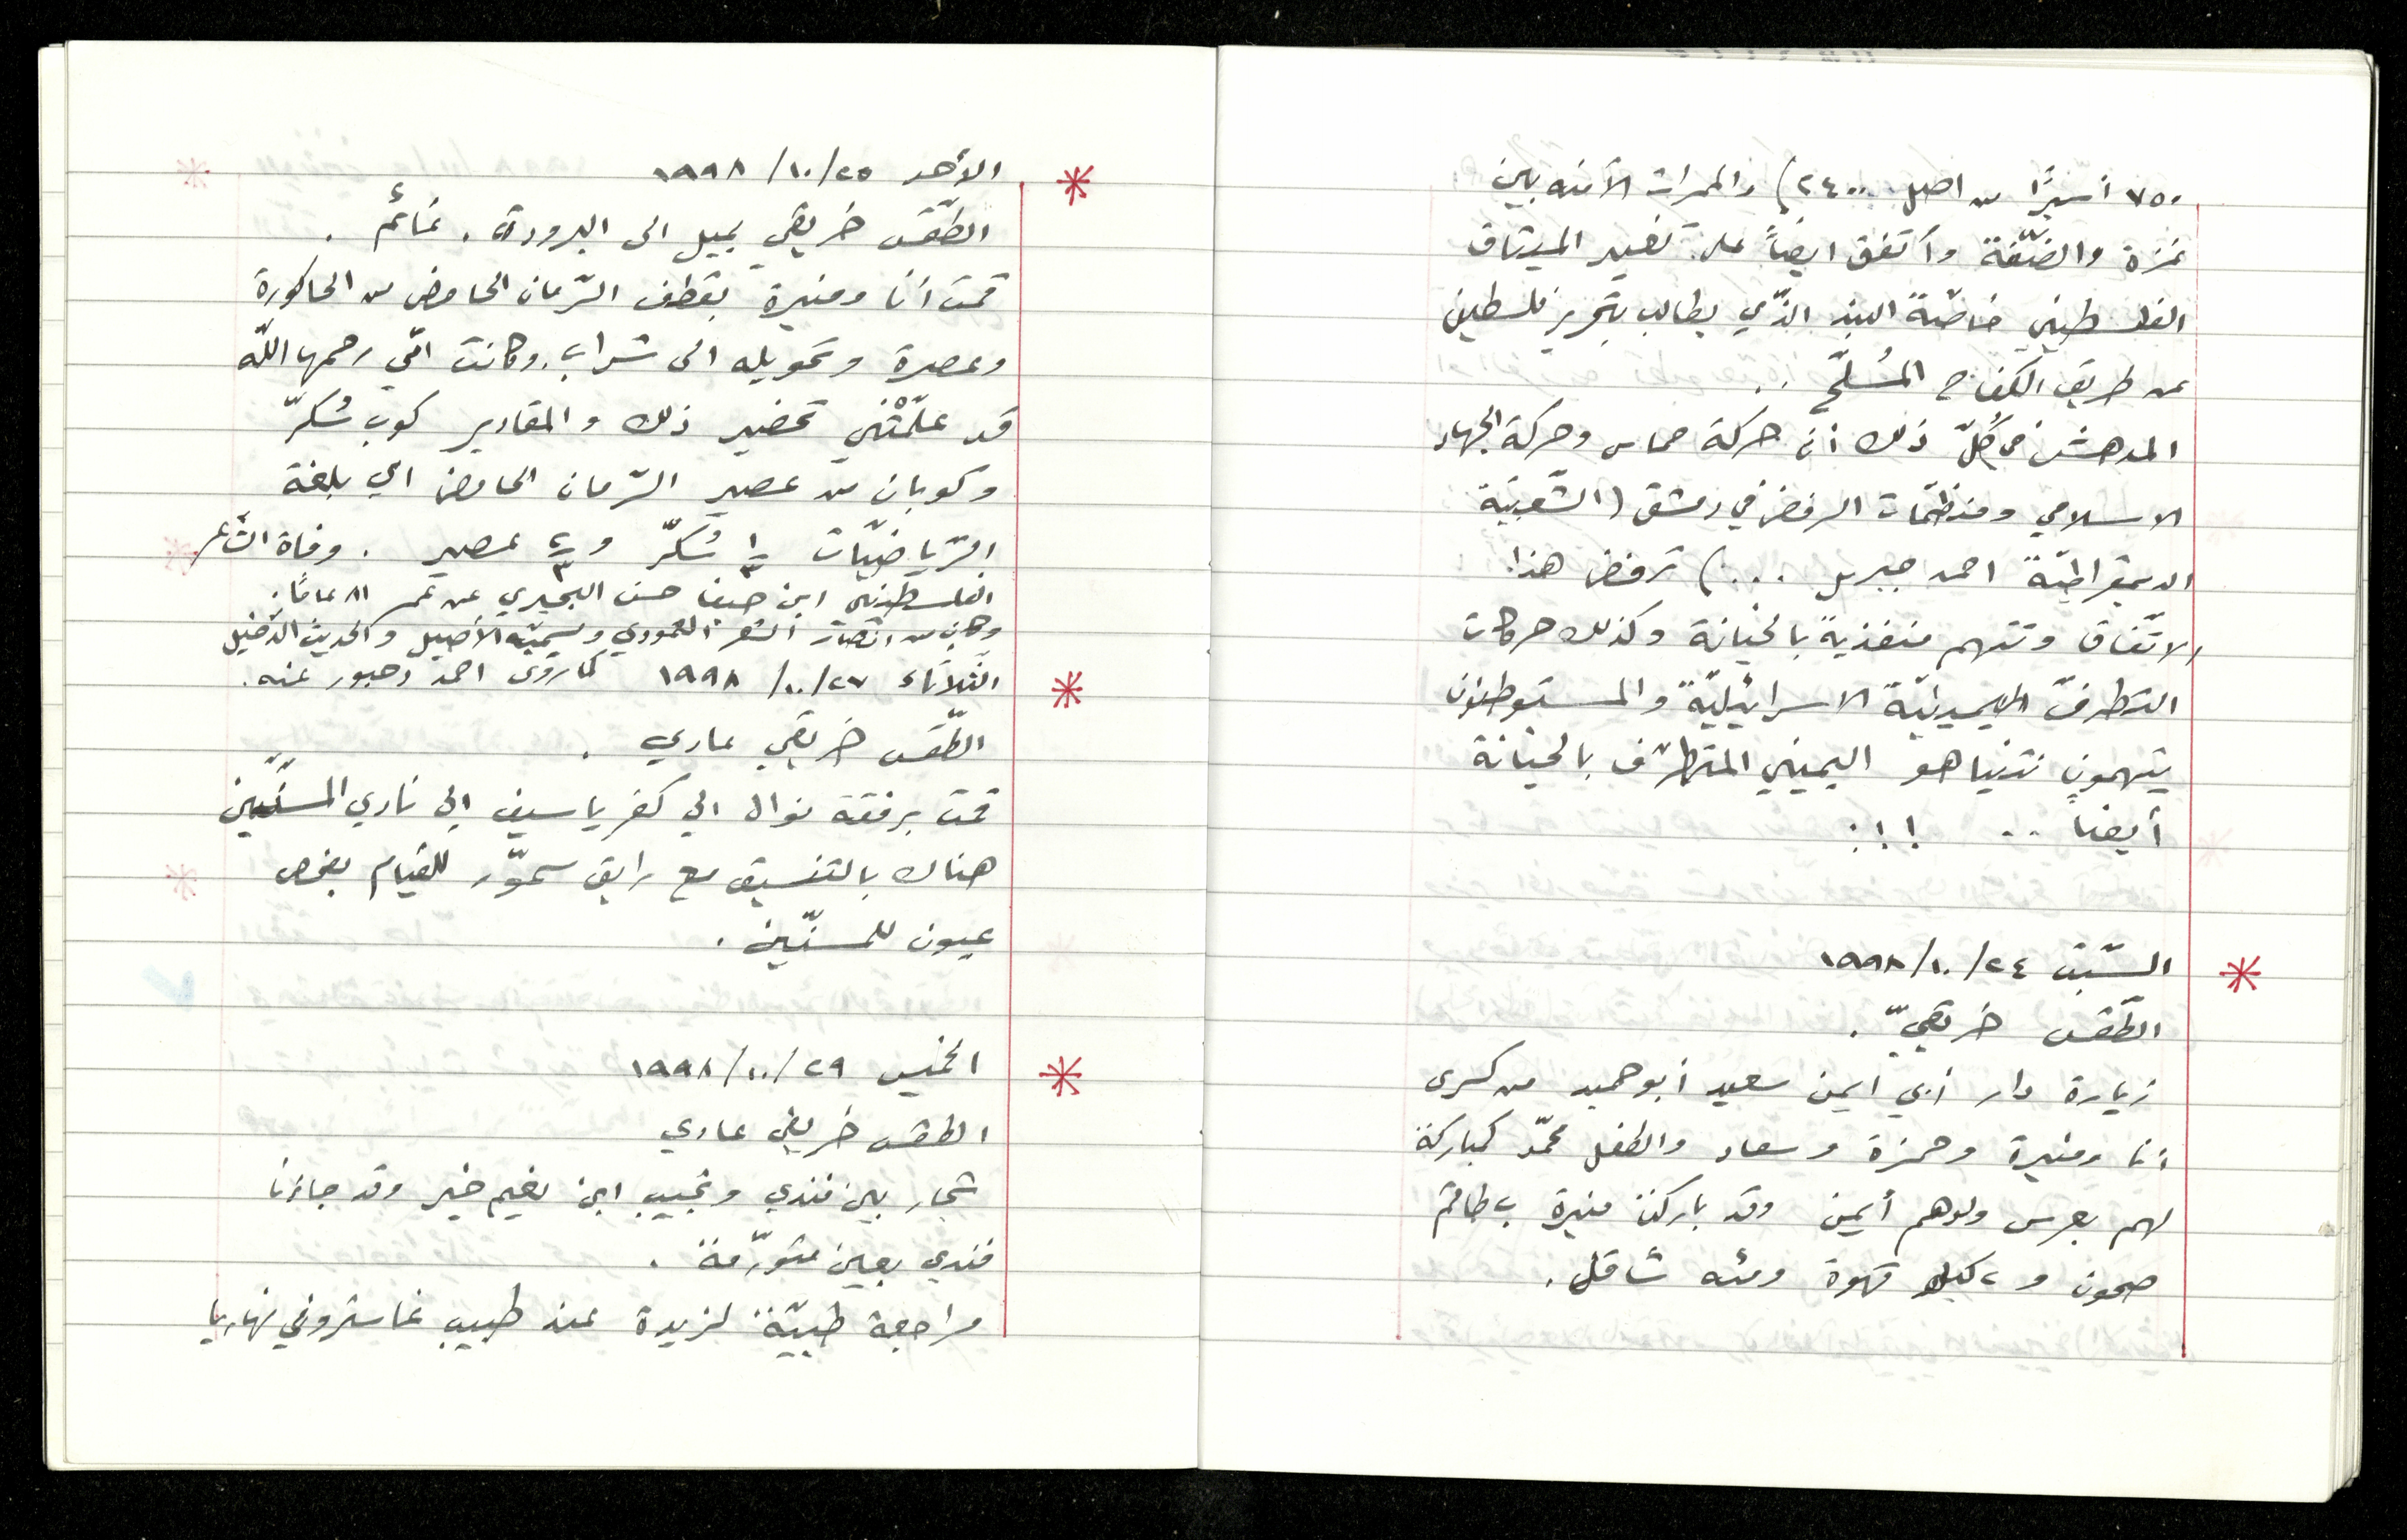 ٧٥٠ أسيرًا من اصل ٢٤٠٠) والممرات الآمنه بين
غزة والضّفّة وأتفق ايضاً على تغيير الميثاق
الفلسطيني خاصّةً البند الذّي يطالب بتحرير فلسطين
عن طريق الكفاح المُسلّح ..
المدهش في كُلّ ذلك أن حركة حماس وحركة الجهاد
الاسلامي ومنظّمات الرفض في دمشق (الشّعبيّة
الديمقراطيّة احمد جبريل ...) ترفض هذا
الاتّفاق وتتهم منفذيةً بالخيانة وكذلك حركات
التطرفّ اليمينيّة الاسرائيليّة والمستوطنون
يتهمون نتنياهو اليميني المتطرّف بالخيانة
أيضاً .. !!!
* السّبت ٢٤/١٠/١٩٩٨
الطّقس خريفيّ .
زيارة دار أبي ايمن سعيد أبو حميد من كسرى
أنا ومنيرة وحمزة وسعاد والطفل محمّد كمباركة
لهم بعرس ولدهم أيمن وقد باركت منيرة ب طاقم
صحون و ٢ كيلو قهوة ومئه شاقل.
* الأحد ٢٥/١٠/١٩٩٨
الطّقس خريفي يميل الى البرودة . غائم .
قمت أنا ومنيرة بقطف الرّمان الحامض من الحاكورة
وعصرة وتحويله الى شراب. وكانت امّي رحمها اللّه
قد علّمتْني تحضير ذلك والمقادير كوب سُكرّ
وكوبان من عصير الرّمان الحامض اي بلغة
الرّياضيّات ١/٣ سُكرّ و ٢/٣ عصير . وفاة الشّاعر
الفلسطيني ابن حيفا حسن البحيري عن عمر ٨١ عامًا.
وكان من انصار الشعر العمودي ويسميّه الأصيل والحديث الدّخيل
* الثّلاثاء ٢٧/١٠/١٩٩٨ كما روى احمد دحبور عنه.
الطّقس خريفي عادي .
قمت برفقة نوال الي كفر ياسيف الى نادي المسنّين
هناك بالتنسيق مع رايق سمّور للقيام بفحص
عيون للمسنّين .
* الخميس ٢٩/١٠/١٩٩٨
الطقس خريفي عادي
شجار بين فندي ونجيب ابن نعيم خير وقد جاءنا
فندي بعين متورّمة .
مراجعة طبيّة لزيدة عند طبيب غاسترو في نهاريا